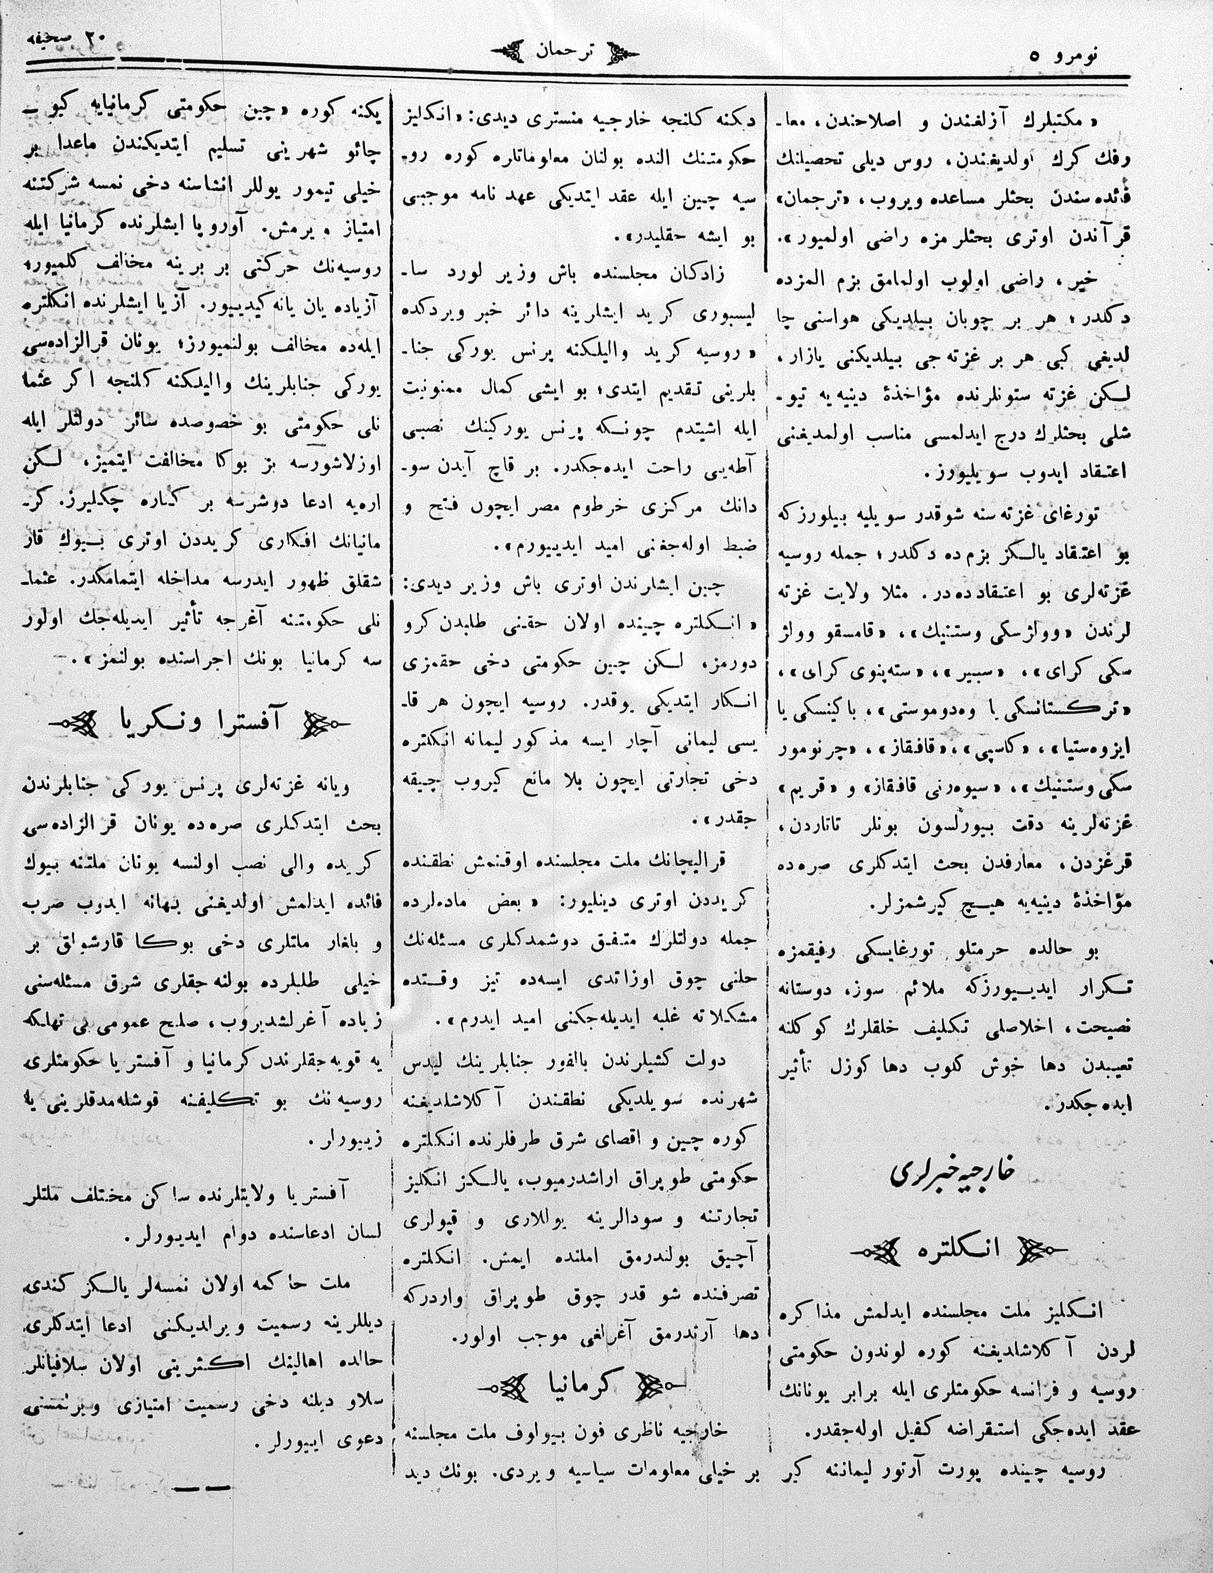 نومرو ٥
ترجمان
٢٠ صحيفه
« مكتبلرك آزلغندن و اصلاحندن، معا-
رفك كرك اولديغندن، روس ديلى تحصيلنك
فائده سندن بحثلر مساعده ويروب، «ترجمان»
قرآندن اوترى بحثلرمزه راضى اولميور».
خير، راضى اولوب اولمامق بزم المزده
دكلدر؛ هر بر چوبان بيلديكى هواسنى چا
لديغى كبى هر بر غزته جى بيلديكنى يازار،
لكن غزته ستونلرنده مؤاخذۀ دينيه يه تيو-
شلى بحثلرك درج ايدلمسى مناسب اولمديغنى
اعتقاد ايدوب سويليورز.
تورغاى غزته سنه شوقدر سويليه بيلورزكه
بو اعتقاد يالكز بزم ده دكلدر؛ جمله روسيه
غزته‌لرى بو اعتقادده‌در. مثلا ولايت غزته
لرندن «وواژسكى وستنيك»، «قامسقو وواژ
سكى كراى»، «سبير»، «سته‌پنوى كراى»،
«تركستانسكى يا وه‌دوموستى»، باكينسكى يا
ايزوه‌ستيا»، «كاسپى»، «قافقاز»، «چرنومور
سكى وستنيك»، «سيوه‌رنى قافقاز» و «قريم»
غزته‌لرينه دقت بيورلسون بونلر تاتاردن،
قرغزدن، معارفدن بحث ايتدكلرى صره‌ده
مؤاخذۀ دينيه‌يه هيچ كيرشمزلر.
بو حالده حرمتلو تورغايسكى رفيقمزه
تكرار ايديورزكه ملائم سوز، دوستانه
نصيحت، اخلاصلى تكليف خلقلرك كوكلنه
تعيبدن دها خوش كلوب دها كوزل تأثير
ايده جكدر.
خارجيه خبرلرى
انكلتره
انكليز ملت مجلسنده ايدلمش مذاكره
لردن آكلاشلديغنه كوره لوندون حكومتى
روسيه و فرانسه حكومتلرى ايله برابر يونانك
عقد ايده‌جكى استقراضه كفيل اوله‌جقدر.
روسيه چينده پورت آرتور ليماننه كير
دكنه كلنجه خارجيه منسترى ديدى: «انكليز
حكومتنك النده بولنان معلوماتلره كوره رو-
سيه چين ايله عقد ايتديكى عهد نامه موجبى
بو ايشه حقليدر».
زادكان مجلسنده باش وزير لورد سا-
ليسبورى كريد ايشلرينه دائر خبر ويردكده
« روسيه كريد واليلكنه پرنس يوركى جنا-
بلرينى تقديم ايتدى؛ بو ايشى كمال ممنونيت
ايله اشيتدم چونكه پرنس يوركينك نصبى
آطه‌يى راحت ايده‌جكدر. بر قاچ آيدن سو-
دانك مركزى خرطوم مصر ايچون فتح و
ضبط اوله‌جغنى اميد ايدييورم».
چين ايشلرندن اوترى باش وزير ديدى:
« انكلتره چينده اولان حقنى طلبدن كرو
دورمز، لكن چين حكومتى دخى حقمزى
انكار ايتديكى يوقدر. روسيه ايچون هر قا-
يسى ليمانى آچار ايسه مذكور ليمانه انكلتره
دخى تجارتى ايچون بلا مانع كيروب چيقه
جقدر».
قراليچانك ملت مجلسنده اوقنمش نطقنده
كريددن اوترى دينليور: « بعض ماده‌لرده
جمله دولتلرك متفق دوشمدكلرى مسئله‌نك
حلنى چوق اوزاتدى ايسه‌ده تيز وقتده
مشكلاته غلبه ايديله‌جكنى اميد ايدرم».
دولت كشيلرندن بالفور جنابلرينك ليدس
شهرنده سويلديكى نطقندن آكلاشلديغنه
كوره چين و اقصاى شرق طرفلرنده انكلتره
حكومتى طوپراق اراشدرميوب، يالكز انكليز
تجارتنه و سودالرينه يوللارى و قپولرى
آچيق بولندرمق املنده ايمش. انكلتره
تصرفنده شو قدر چوق طوپراق واردركه
دها آرتدرمق آغرلغى موجب اولور.
كرمانيا
خارجيه ناظرى فون بيولوف ملت مجلسنه
بر خيلى معلومات سياسيه ويردى. بونك ديد
يكنه كوره «چين حكومتى كرمانيايه كيو -
چائو شهرينى تسليم ايتديكندن ماعدا بر
خيلى تيمور يوللر انشاسنه دخى نمسه شركتنه
امتياز ويرمش. آوروپا ايشلرنده كرمانيا ايله
روسيه‌نك حركتى بر برينه مخالف كلميور؛
آزياده يان يانه كيدييور. آزيا ايشلرنده انكلتره
ايله‌ده مخالف بولنميورز؛ يونان قرالزاده‌سى
يوركى جنابلرينك واليلكنه كلنجه اكر عثما
نلى حكومتى بو خصوصده سائر دولتلر ايله
اوزلاشورسه بز بوكا مخالفت ايتميز، لكن
اره‌يه ادعا دوشرسه بر كناره چكليرز. كر-
مانيانك افكارى كريددن اوترى بيوك قار
شقلق ظهور ايدرسه مداخله ايتمامكدر. عثما-
نلى حكومتنه آغرجه تأثير ايديله‌جك اولور
سه كرمانيا بونك اجراسنده بولنمز».
آفستريا ونكريا
ويانه غزته‌لرى پرنس يوركى جنابلرندن
بحث ايتدكلرى صره‌ده يونان قرالزاده‌سى
كريده والى نصب اولنسه يونان ملتنه بيوك
فائده ايدلمش اولديغنى بهانه ايدوب صرب
و بلغار ملتلرى دخى بوكا قارشولق بر
خيلى طلبلرده بولنه جقلرى شرق مسئله‌سنى
زياده آغرلشديروب، صلح عمومى‌يى تهلكه
يه قويه‌جقلرندن كرمانيا و آفستريا حكومتلرى
روسيه‌نك بو تكليفنه قوشله‌مدقلرينى يا
زييورلر.
آفستريا ولايتلرنده ساكن مختلف ملتلر
لسان ادعاسنده دوام ايديورلر.
ملت حاكمه اولان نمسه‌لر يالكز كندى
ديللرينه رسميت ويرلديكنى ادعا ايتدكلرى
حالده اهالينك اكثريتى اولان سلافيانلر
سلاو ديلنه دخى رسميت امتيازى ويرلمسنى
دعوى ايييورلر.